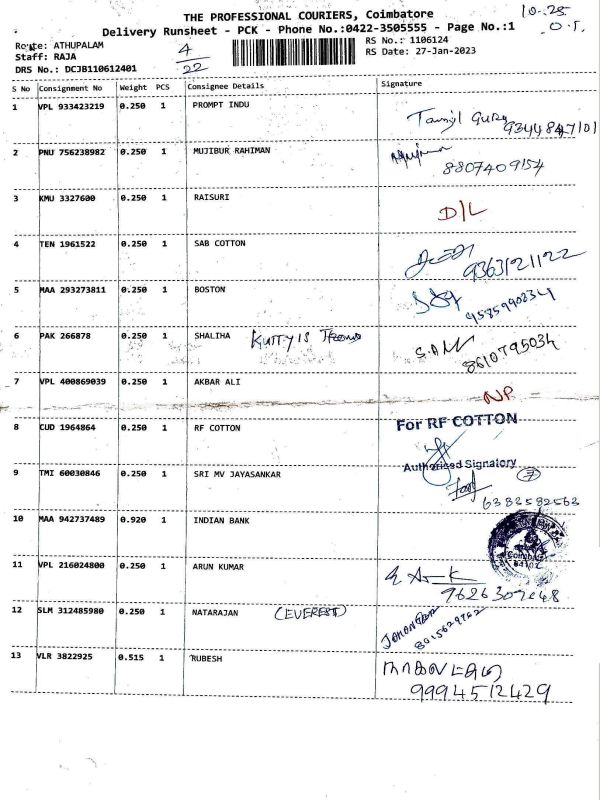 THE PROFESSIONAL COURIERS, Coimbatore
10-25
Delivery Runsheet - PCK - Phone No.:0422-3505555 - Page No.:1
Route: ATHUPALAM
4/22
RS No.: 1106124
Staff: RAJA
RS Date: 27-Jan-2023
DRS No.: DCJB110612401
S No Consignment No Weight PCS Consignee Details Signature
1 VPL 933423219 0.250 1 PROMPT INDU
9344847101
2 PNU 756238982 0.250 1 MUJIBUR RAHIMAN
8807409154
3 KMU 3327600 0.250 1 RAISURI D/L
4 TEN 1961522 0.250 1 SAB COTTON
9363121122
5 MAA 293273811 0.250 1 BOSTON
9585990834
6 PAK 266878 0.250 1 SHALIHA
8610795034
7 VPL 400869039 0.250 1 AKBAR ALI NP
8 CUD 1964864 0.250 1 RF COTTON For RF COTTON
Authorised Signatory
9 TMI 60030846 0.250 1 SRI MV JAYASANKAR 7
6383582563
10 MAA 942737489 0.920 1 INDIAN BANK
11 VPL 216024800 0.250 1 ARUN KUMAR
9626307248
12 SLM 312485980 0.250 1 NATARAJAN (EVEREST)
8015629762
13 VLR 3822925 0.515 1 RUBESH
9994512429